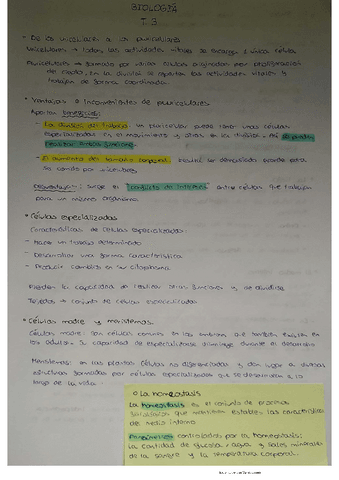 BIOLOGÍA
T.3
De los unicelulares a los pluricelulares
Unicelulares → todas las actividades vitales se encarga 1 única célula.
Pluricelulares → formado por varias células originadas por proliferación
de cigoto, en la división se reparten las actividades vitales y
trabajan de forma coordinada.
Ventajas e inconvenientes de pluricelulares
Aportan beneficios:
- La división del trabajo: un pluricelular puede tener unas células
especializadas en el movimiento y otras en la división. Así se pueden
repartir
- El aumento del tamaño corporal:
Desventajas: Surge el "conflicto de intereses" entre células que trabajan
para un mismo organismo.
Células especializadas
Características de células especializadas:
- Hace un trabajo determinado
- Desarrollar una forma característica
- Producir cambios en su citoplasma
Pierden la capacidad de realizar otras funciones y de dividirse
Tejidos → conjunto de células especializadas
Células madre y meristemas:
Células madre: son células comunes en los embriones que también existen en
los adultos. Su capacidad de especializarse disminuye durante el desarrollo
Meristemas: en las plantas células no diferenciadas y dan lugar a diversas
estructuras formadas por células especializadas que se desarrollan a lo
largo de la vida.
La homeostasis
La homeostasis es el conjunto de procesos
que mantienen estables las características
de medio interno
Parámetros controlados por la homeostasis:
La cantidad de glucosa, agua y sales minerales
de la sangre y la temperatura corporal.